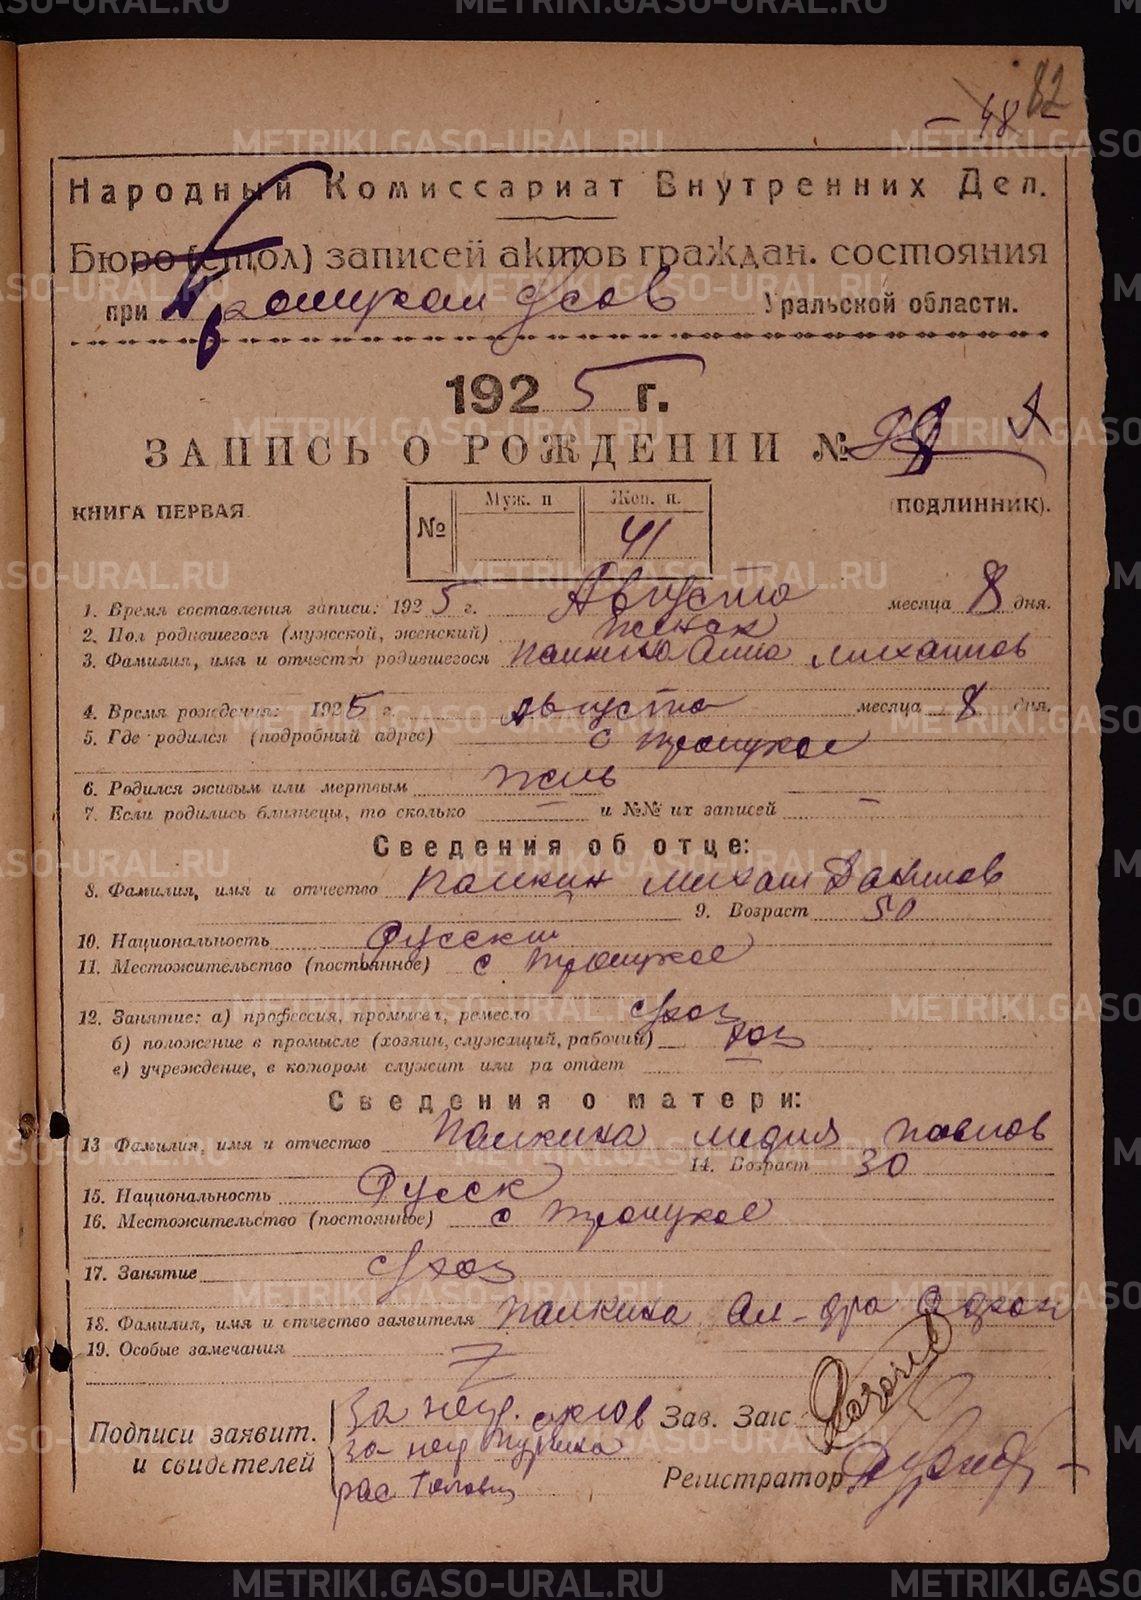 82
- 48
Народный Комиссариат Внутренних Дел.
Бюро (стол) записей актов граждан. состояния
при Троицком Уральской области.
1925 г.
ЗАПИСЬ О РОЖДЕНИИ №
КНИГА ПЕРВАЯ. (ПОДЛИННИК).
№ Муж. п Жен. п.
41
1. Время составления записи: 1925 г. Августа месяца 8 дня.
2. Пол родившегося (мужской, женский) женск
3. Фамилия, имя и отчество родившегося Палкина Анна Михайлов
4. Время рождения: 1925 г. августа месяца 8 дня.
5. Где родился (подробный адрес) с Троицкое
6. Родился живым или мертвым жив
7. Если родились близнецы, то сколько — и №№ их записей —
Сведения об отце:
8. Фамилия, имя и отчество Палкин Михаил Данилов
9. Возраст 50
10. Национальность Русский
11. Местожительство (постоянное) с Троицкое
12. Занятие: а) профессия, промысел, ремесло с/хоз
б) положение в промысле (хозяин, служащий, рабочий) хоз
в) учреждение, в котором служит или ра отает —
Сведения о матери:
13 Фамилия, имя и отчество Палкина Лидия Павлов
14. Возраст 30
15. Национальность Русск
16. Местожительство (постоянное) с Троицкое
17. Занятие с/хоз
18. Фамилия, имя и отчество заявителя Палкина Ал-дра
19. Особые замечания
Подписи заявит. и свидетелей
за негр.
за негр
рас
Зав. Загс
Регистратор
METRIKI.GASO-URAL.RU